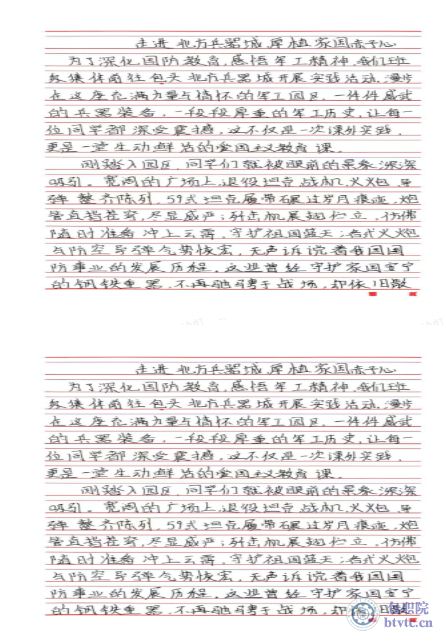 走进北方兵器城 厚植家国赤子心
为了深化国防教育,感悟军工精神,我们班
级集体前往包头北方兵器城开展实践活动。漫步
在这座充满力量与情怀的军工园区,一件件威武
的兵器装备,一段段厚重的军工历史,让每一
位同学都深受震撼,这不仅是一次课外实践,
更是一堂生动鲜活的爱国主义教育课。
刚踏入园区,同学们就被眼前的景象深深
吸引。宽阔的广场上退役坦克战机、火炮、导
弹整齐陈列,59式坦克履带碾过岁月痕迹,炮
管直指苍穹,尽显威严;歼击机展翅伫立,仿佛
随时准备冲上云霄,守护祖国蓝天;各式火炮
与防空导弹气势恢宏,无声诉说着我国国
防事业的发展历程。这些曾经守护家国安宁
的钢铁重器,不再驰骋于战场,却依旧散
走进北方兵器城 厚植家国赤子心
为了深化国防教育,感悟军工精神,我们班
级集体前往包头北方兵器城开展实践活动。漫步
在这座充满力量与情怀的军工园区,一件件威武
的兵器装备,一段段厚重的军工历史,让每一
位同学都深受震撼,这不仅是一次课外实践,
更是一堂生动鲜活的爱国主义教育课。
刚踏入园区,同学们就被眼前的景象深深
吸引。宽阔的广场上退役坦克战机、火炮、导
弹整齐陈列,59式坦克履带碾过岁月痕迹,炮
管直指苍穹,尽显威严;歼击机展翅伫立,仿佛
随时准备冲上云霄,守护祖国蓝天;各式火炮
与防空导弹气势恢宏,无声诉说着我国国
防事业的发展历程。这些曾经守护家国安宁
的钢铁重器,不再驰骋于战场,却依旧散
btvtc.cn